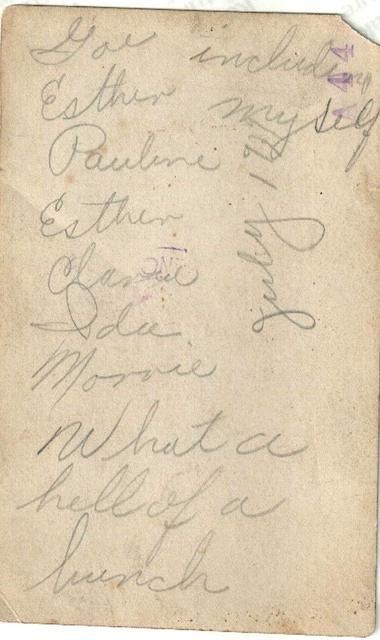 Goe including
Esther myself
Pauline
Esther
Clarice
Ida
Morrie
What a
hell of a
bunch
July 1
A44